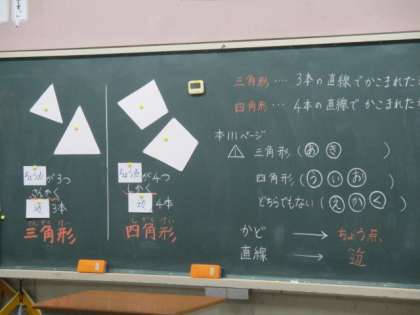 ちょう点が3つ
辺3本
三角形
ちょう点が4つ
辺4本
四角形
三角形…3本の直線でかこまれた
四角形…4本の直線でかこまれた
本111ページ
三角形(あき)
四角形(ういお)
どちらでもない(えかく)
かど→ちょう点
直線→辺